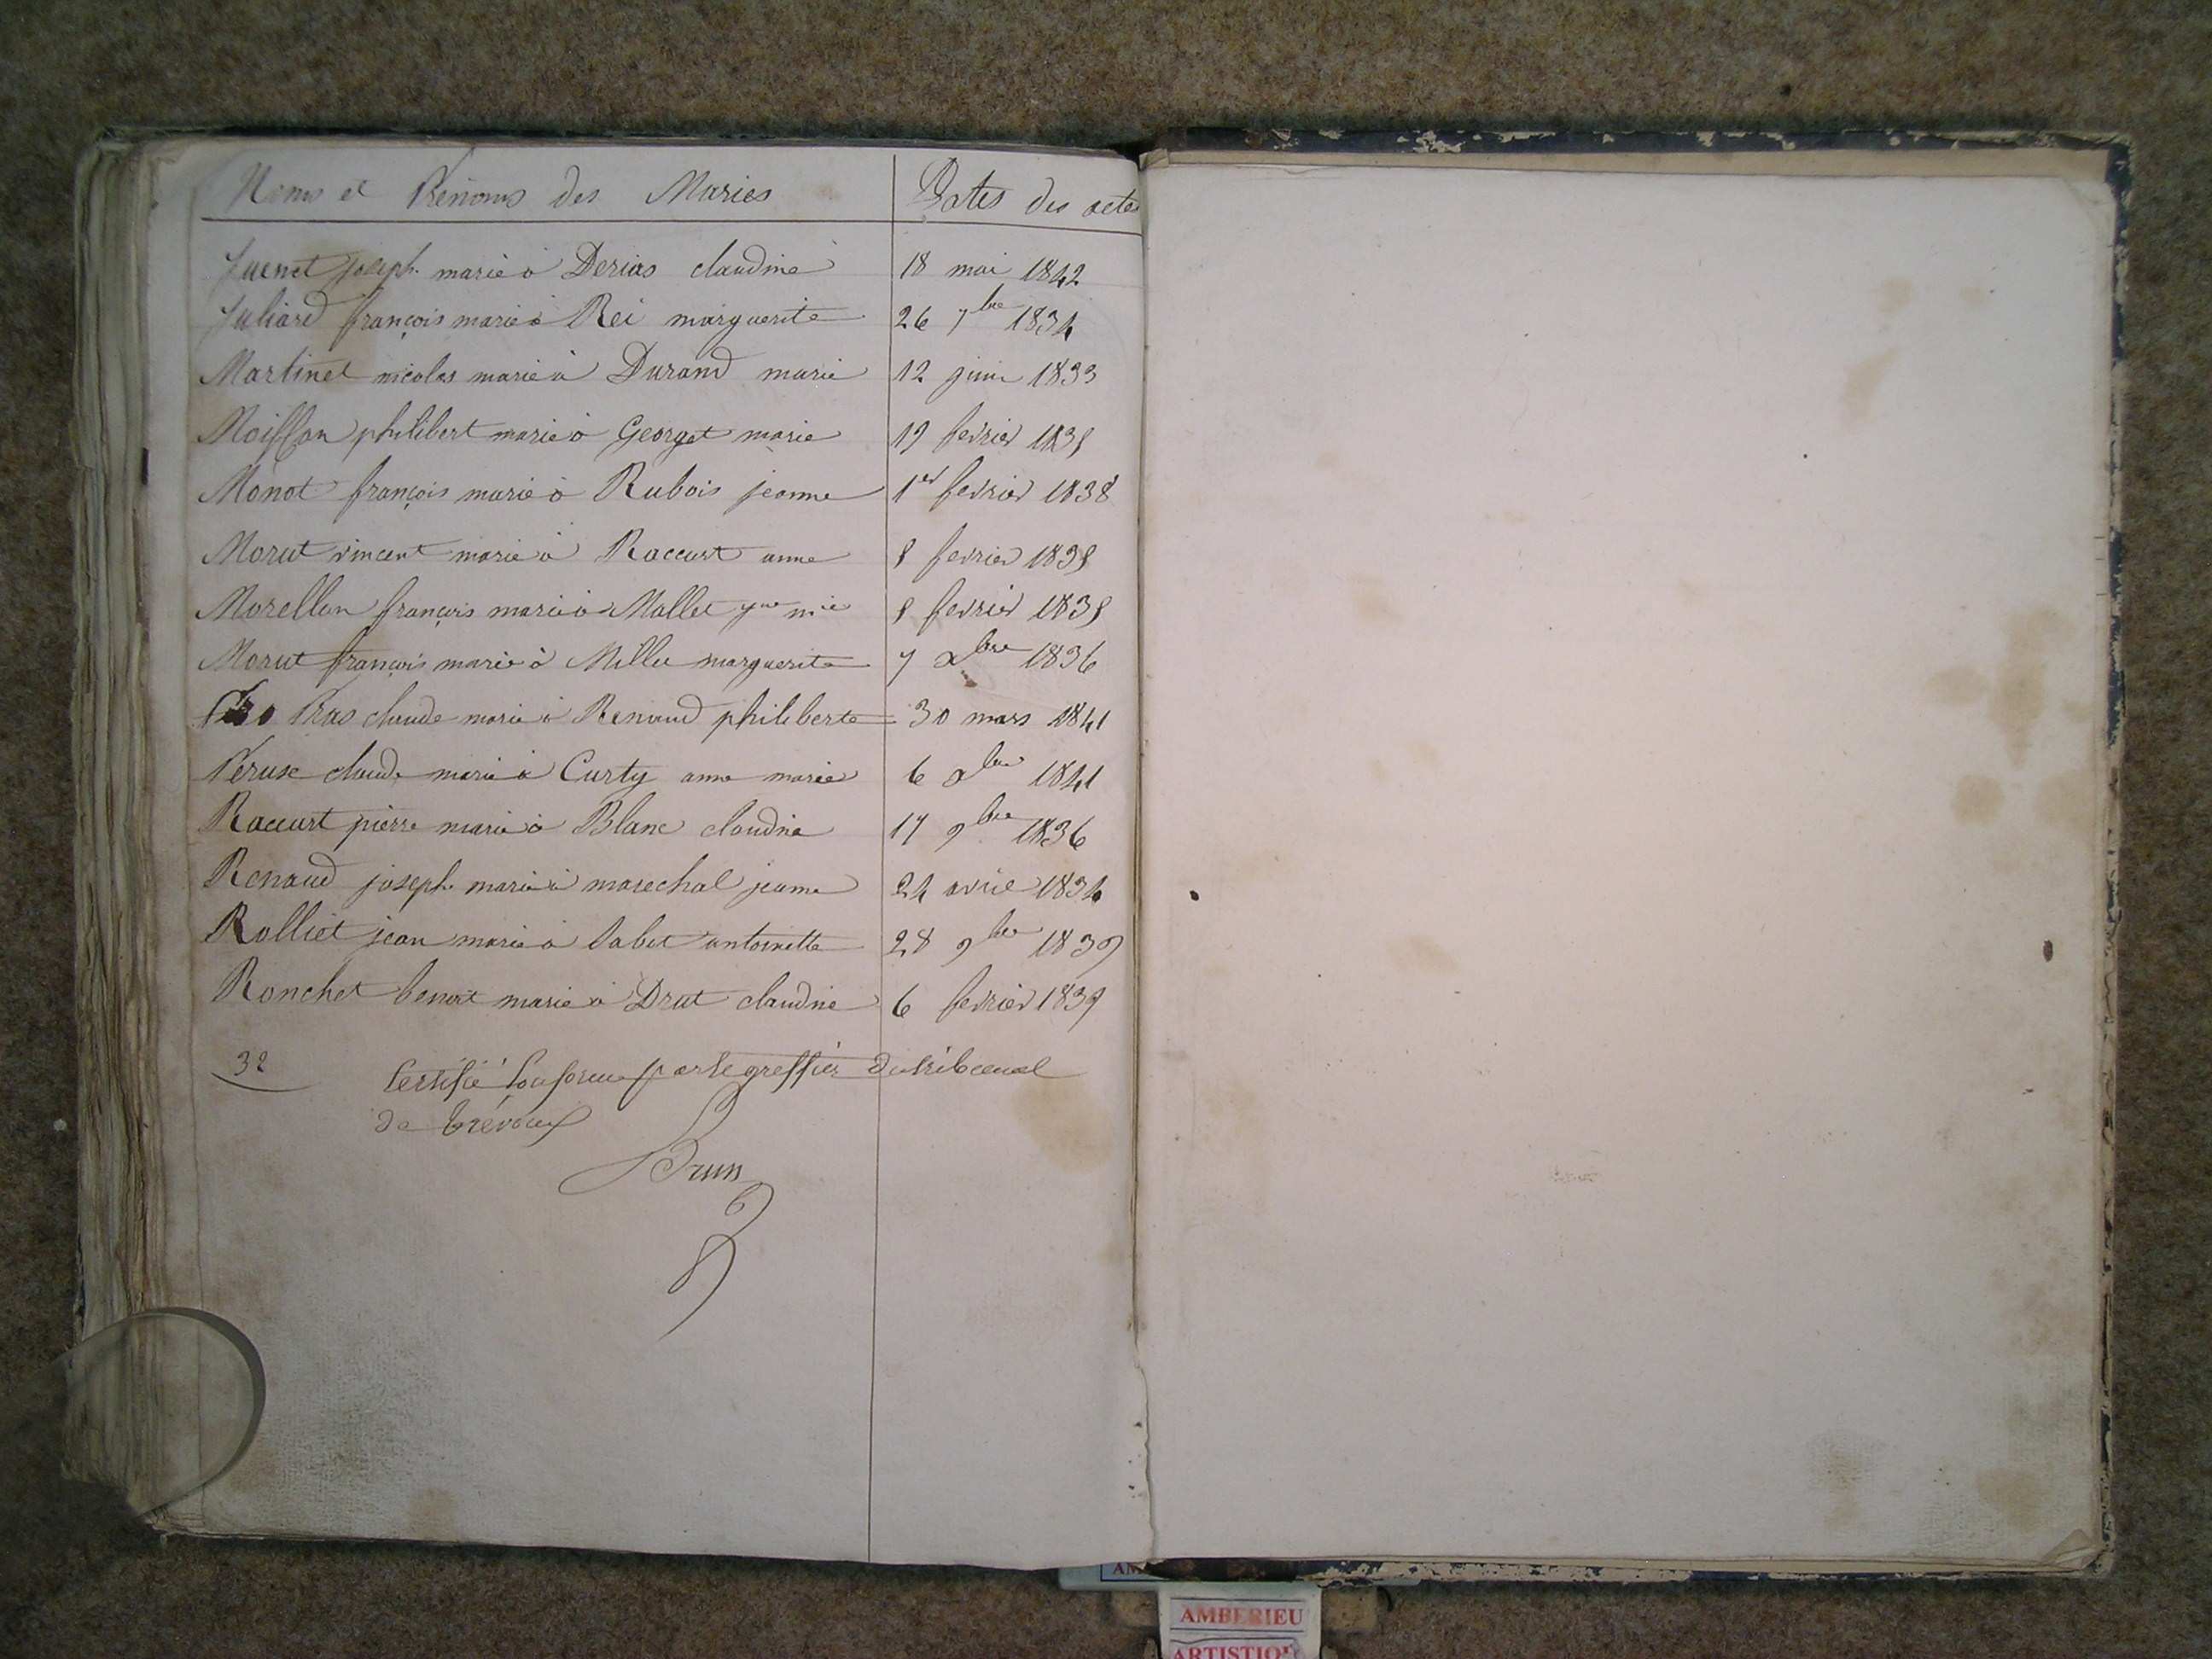 Noms et Prénoms des Mariés Dates des actes
Juenet joseph marié à Derias claudine 18 mai 1842
Juliard françois marié à Rei marguerite 26 7bre 1834
Martinet nicolas marié à Durand marie 12 juin 1833
Moiffon philibert marié à Georget marie 19 fevrier 1838
Monot françois marié à Rubois jeanne 1er fevrier 1838
Morut vincent marié à Raccurt anne 8 fevrier 1838
Morellon françois marié à Mallet mie 8 fevrier 1838
Morut françois marié à Millu marguerite 7 xbre 1836
Pras claude marié à Renaud philiberte 30 mars 1841
Peruse claude marié à Curty anne marie 6 xbre 1841
Raccurt pierre marié à Blanc claudine 17 9bre 1836
Renaud joseph marié à marechal jeanne 24 avril 1834
Rolliet jean marié à Sabot antoinette 28 9bre 1839
Ronchet benoit marié à Drut claudine 6 fevrier 1839
32
Certifié Conforme par le greffier du tribunal
de Trévoux
Brun
AMBERIEU